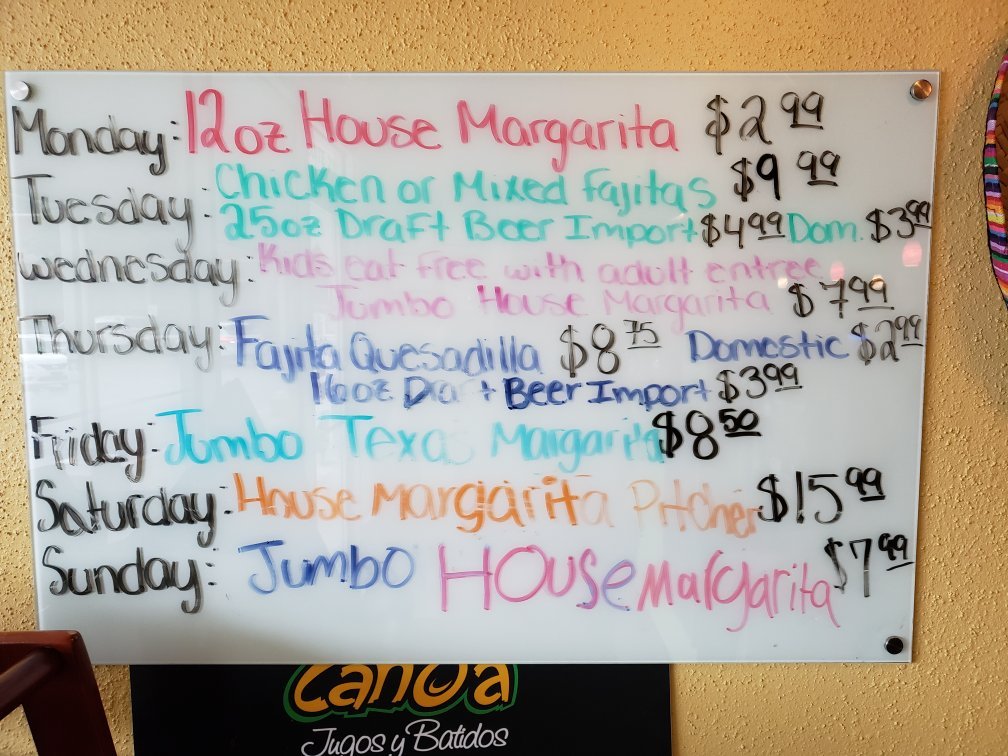 Monday: 12oz House Margarita $2 99
Tuesday: Chicken or Mixed Fajitas $9 99
25oz Draft Beer Import $4 99 Dom. $3 99
Wednesday: Kids eat free with adult entree
Jumbo House Margarita $7 99
Thursday: Fajita Quesadilla $8 75 Domestic $2 99
16oz Dra t Beer Import $3 99
Friday: Jumbo Texas Margarita $8 50
Saturday: House Margarita Pitcher $15 99
Sunday: Jumbo House Margarita $7 99
Canoa
Jugos y Batidos